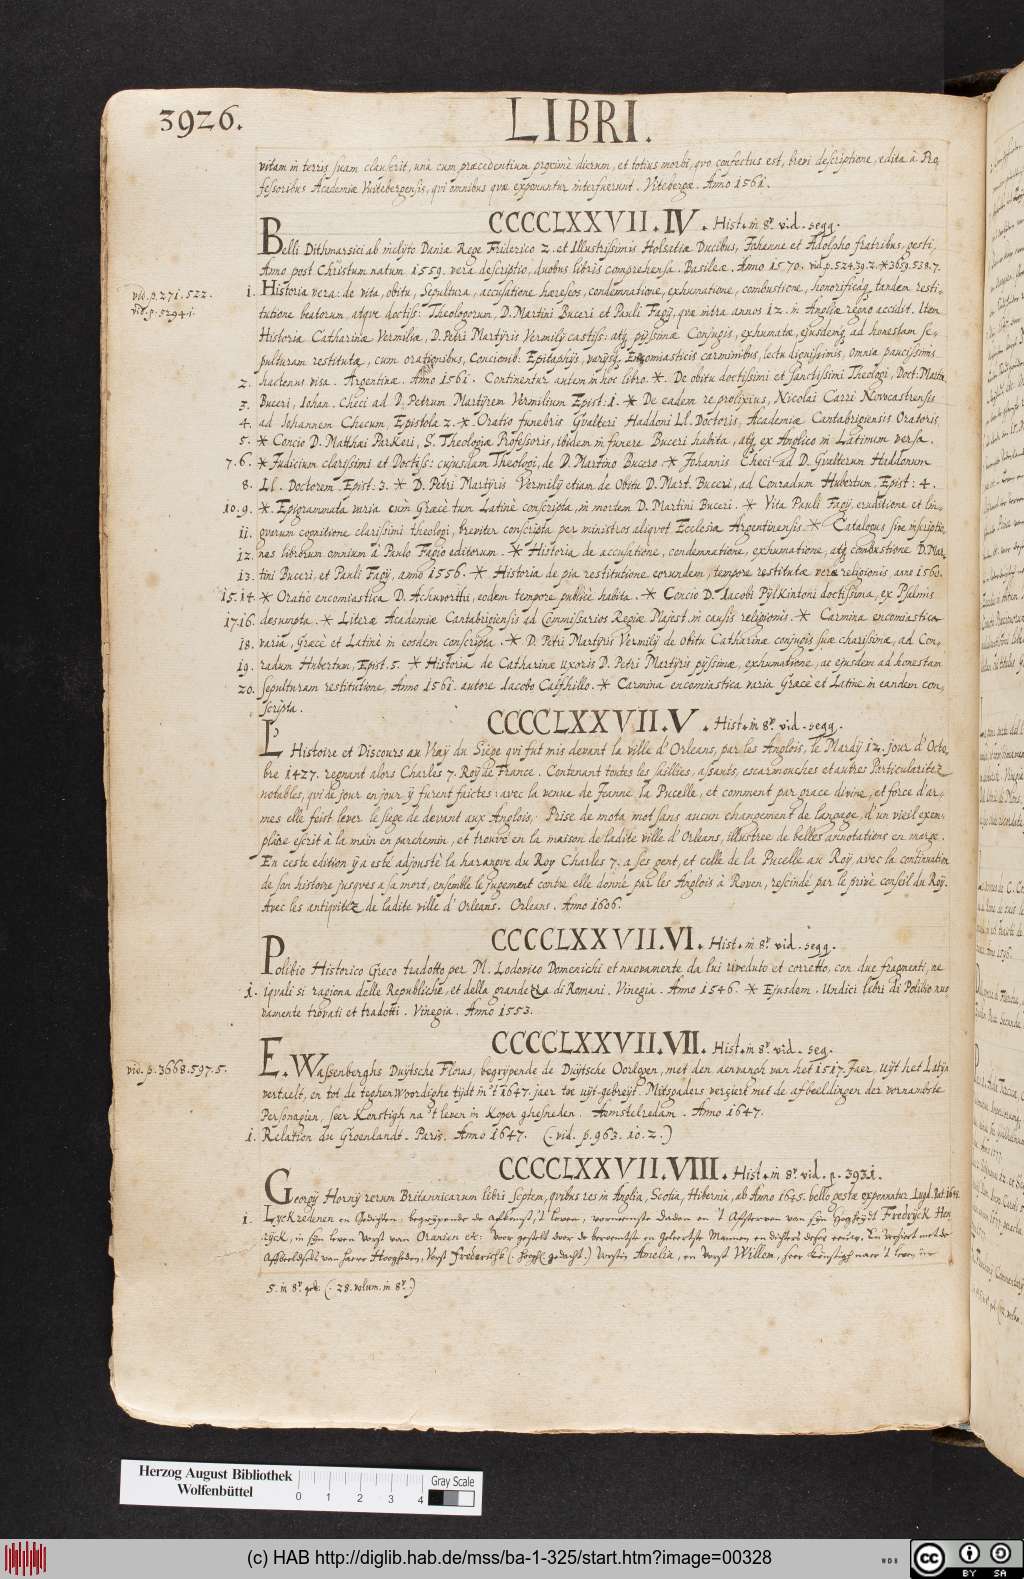 3926.
LIBRI.
vitam in terris suam clauserit, unà cum præcedentium proximè dierum, et totius morbi, qvo confectus est, brevi descriptione, edita à Pro,
fessoribus Academiæ Wittebergensis, qvi omnibus qvæ exponuntur interfuerunt. Vitebergæ. Anno 1561.
CCCCLXXVII.IV. Hist. in 8º. vid. seqq.
Belli Dithmarsici ab inclyto Daniæ Rege Friderico 2. et Illustrissimis Holsatiæ Ducibus, Johanne et Adolpho fratribus, gesti,
Anno post Christum natum 1559. vera descriptio, duobus libris comprehensa. Basileæ, Anno 1570. vid. p. 524.39.2. * 3659.538.7.
vid. p. 271.522.
vid. p. 5294.1.
1. Historia vera: de vita, obitu, Sepultura, accusatione hæreseos, condemnatione, exhumatione, combustione, honorificaq. tandem resti-
tutione beatorum, atqve doctiss: Theologorum, D. Martini Buceri et Pauli Fagij, qvæ intra annos 12. in Angliæ regno accidit. Item
Historia Catharinæ Vermiliæ, D. Petri Martyris Vermilij castiss: atq. pijssimæ Conjugis, exhumatæ, ejusdemq. ad honestam se-
pulturam restitutæ, cum orationibus, Concionib. Epitaphijs, varijsq. Encomiasticis carminibus, lectu dignissimis, omnia paucissimis
2. hactenus visa. Argentinæ. Anno 1561. Continentur autem in hoc libro. * De obitu doctissimi et sanctissimi Theologi, Doct: Martin
3. Buceri, Iohan. Checi ad D. Petrum Martyrem Vermilium Epist: 1. * De eadem re prolixius, Nicolai Carri Novocastrensis
4. ad Iohannem Checum, Epistola 2. * Oratio funebris Gvalteri Haddoni Ll. Doctoris, Academiæ Cantabrigiensis Oratoris.
5. * Concio D. Matthæi Parkeri, S. Theologiæ Professoris, ibidem in funere Buceri habita, atq. ex Anglico in Latinum versa.
7.6. * Judicium clarissimi et Doctiss: cujusdam Theologi, de D. Martino Bucero. * Johannis Checi ad D. Gvalterum Heddonum
8. Ll. Doctorem. Epist: 3. * D. Petri Martyris Vermilij etiam de Obitu D. Mart. Buceri, ad Conradum Hubertum, Epist: 4.
10.9. * Epigrammata varia cum Græcè tum Latinè conscripta, in mortem D. Martini Buceri. * Vita Pauli Fagij, eruditione et lin-
11. gvarum cognitione clarissimi theologi, breviter conscripta per ministros aliqvot Ecclesiæ Argentinensis. * Catalogus sive inscriptio,
12. nes librorum omnium à Paulo Fagio editorum. * Historia de accusatione, condemnatione, exhumatione, atq. combustione D. Mar,
13. tini Buceri, et Pauli Fagij, anno 1556. * Historia de pia restitutione eorundem, tempore restitutæ veræ religionis, anno 1560.
15.14. * Oratio encomiastica D. Achworthi, eodem tempore publicè habita. * Concio D. Iacobi Pylkintoni doctissima, ex Psalmis
17.16. desumpta. * Literæ Academiæ Cantabrigiensis ad Commissarios Regiæ Majest. in causis religionis. * Carmina encomiastica
18. varia, Græcè et Latinè in eosdem conscripta. * D. Petri Martyris Vermilij de Obitu Catharinæ conjugis suæ charissimæ, ad Con-
19. radum Hubertum, Epist. 5. * Historia de Catharinæ uxoris D. Petri Martyris pijssimæ, exhumatione, ac ejusdem ad honestam
20. sepulturam restitutione, Anno 1561. autore Iacobo Calfhillo. * Carmina encomiastica varia Græcè et Latinè in eandem con-
scripta.
CCCCLXXVII.V. Hist. in 8º. vid. seqq.
L' Histoire et Discours au Vray du Siege qvi fut mis devant la ville d' Orleans, par les Anglois, le Mardy 12. jour d' Octo,
bre 1427. regnant alors Charles 7. Roy de France. Contenant toutes les saillies, assauts, escarmouches et autres Particularitez
notables, qvi de jour en jour y furent faictes: avec la venue de Jeanne la Pucelle, et comment par grace divine, et force d'ar-
mes elle feist lever le siege de devant aux Anglois, Prise de mot a mot sans aucun changement de langage, d'un vieil exem-
plaire escrit à la main en parchemin, et trouvé en la maison de ladite ville d' Orleans, illustree de belles annotations en marge.
En ceste edition y a esté adjousté la harangve du Roy Charles 7. a ses gent, et celle de la Pucelle au Roy, avec la continuation
de son histoire jusqves a sa mort, ensemble le jugement contre elle donné par les Anglois à Roven, rescindé par le privé conseil du Roy.
Avec les antiqvitez de ladite ville d' Orleans. Orleans. Anno 1606.
CCCCLXXVII.VI. Hist. in 8º. vid. seqq.
Polibio Historico Greco tradotto per M. Lodovico Domenichi et nuovamente da lui riveduto et corretto, con due fragmenti, ne
1. iqvali si ragiona delle Republiche, et della grandezza di Romani. Vinegia. Anno 1546. * Ejusdem. Undici libri di Polibio nuo
vamente trovati et tradotti. Vinegia. Anno 1553.
CCCCLXXVII.VII. Hist. in 8º. vid. seq.
vid. p. 3668.597.5.
E. Wassenberghs Duytsche Florus, begrypende de Duytsche Oorlogen, met den aenvangh van het 1517. Jaer, uyt het Latyn
vertaelt, en tot de teghenwoordighe tijdt in't 1647. jaer toe uyt-gebreyt. Mitsgaders verciert met de afbeeldingen der vornamste
Personagien, seer Konstigh na 't leven in Koper ghesneden. Amstelredam. Anno 1647.
1. Relation du Groenlandt. Paris. Anno 1647. (. vid. p. 963. 10. 2.)
CCCCLXXVII.VIII. Hist. in 8º. vid. p. 3931.
Georgij Hornij rerum Britannicarum libri septem, qvibus res in Anglia, Scotia, Hibernia, ab Anno 1645. bello gestæ exponuntur. Lugd. Bat. 1648.
1. Lyckredenen en Gedichten, begrijpende de afkomst, 't leven, voorneemste daden en 't Afsterven van sijn Hogheydt Fredryck Hen
ryck, in sijn leven Vorst van Oranien etc: Voor gestelt door de beroemtste en geleertste Mannen en dichters deser eeuw. En verciert met de
Affbeeldsels van haere Hoogheden, Vorst Frederick (. hoogh. gedacht.) Vorstin Amelia, en Vorst Willem, seer konstigh naer 't leven in
5. in 8º. geb. (. 28. volum. in 8º.)
Herzog August Bibliothek
Wolfenbüttel
0 1 2 3 4
Gray Scale
(c) HAB http://diglib.hab.de/mss/ba-1-325/start.htm?image=00328
WDB
cc BY SA